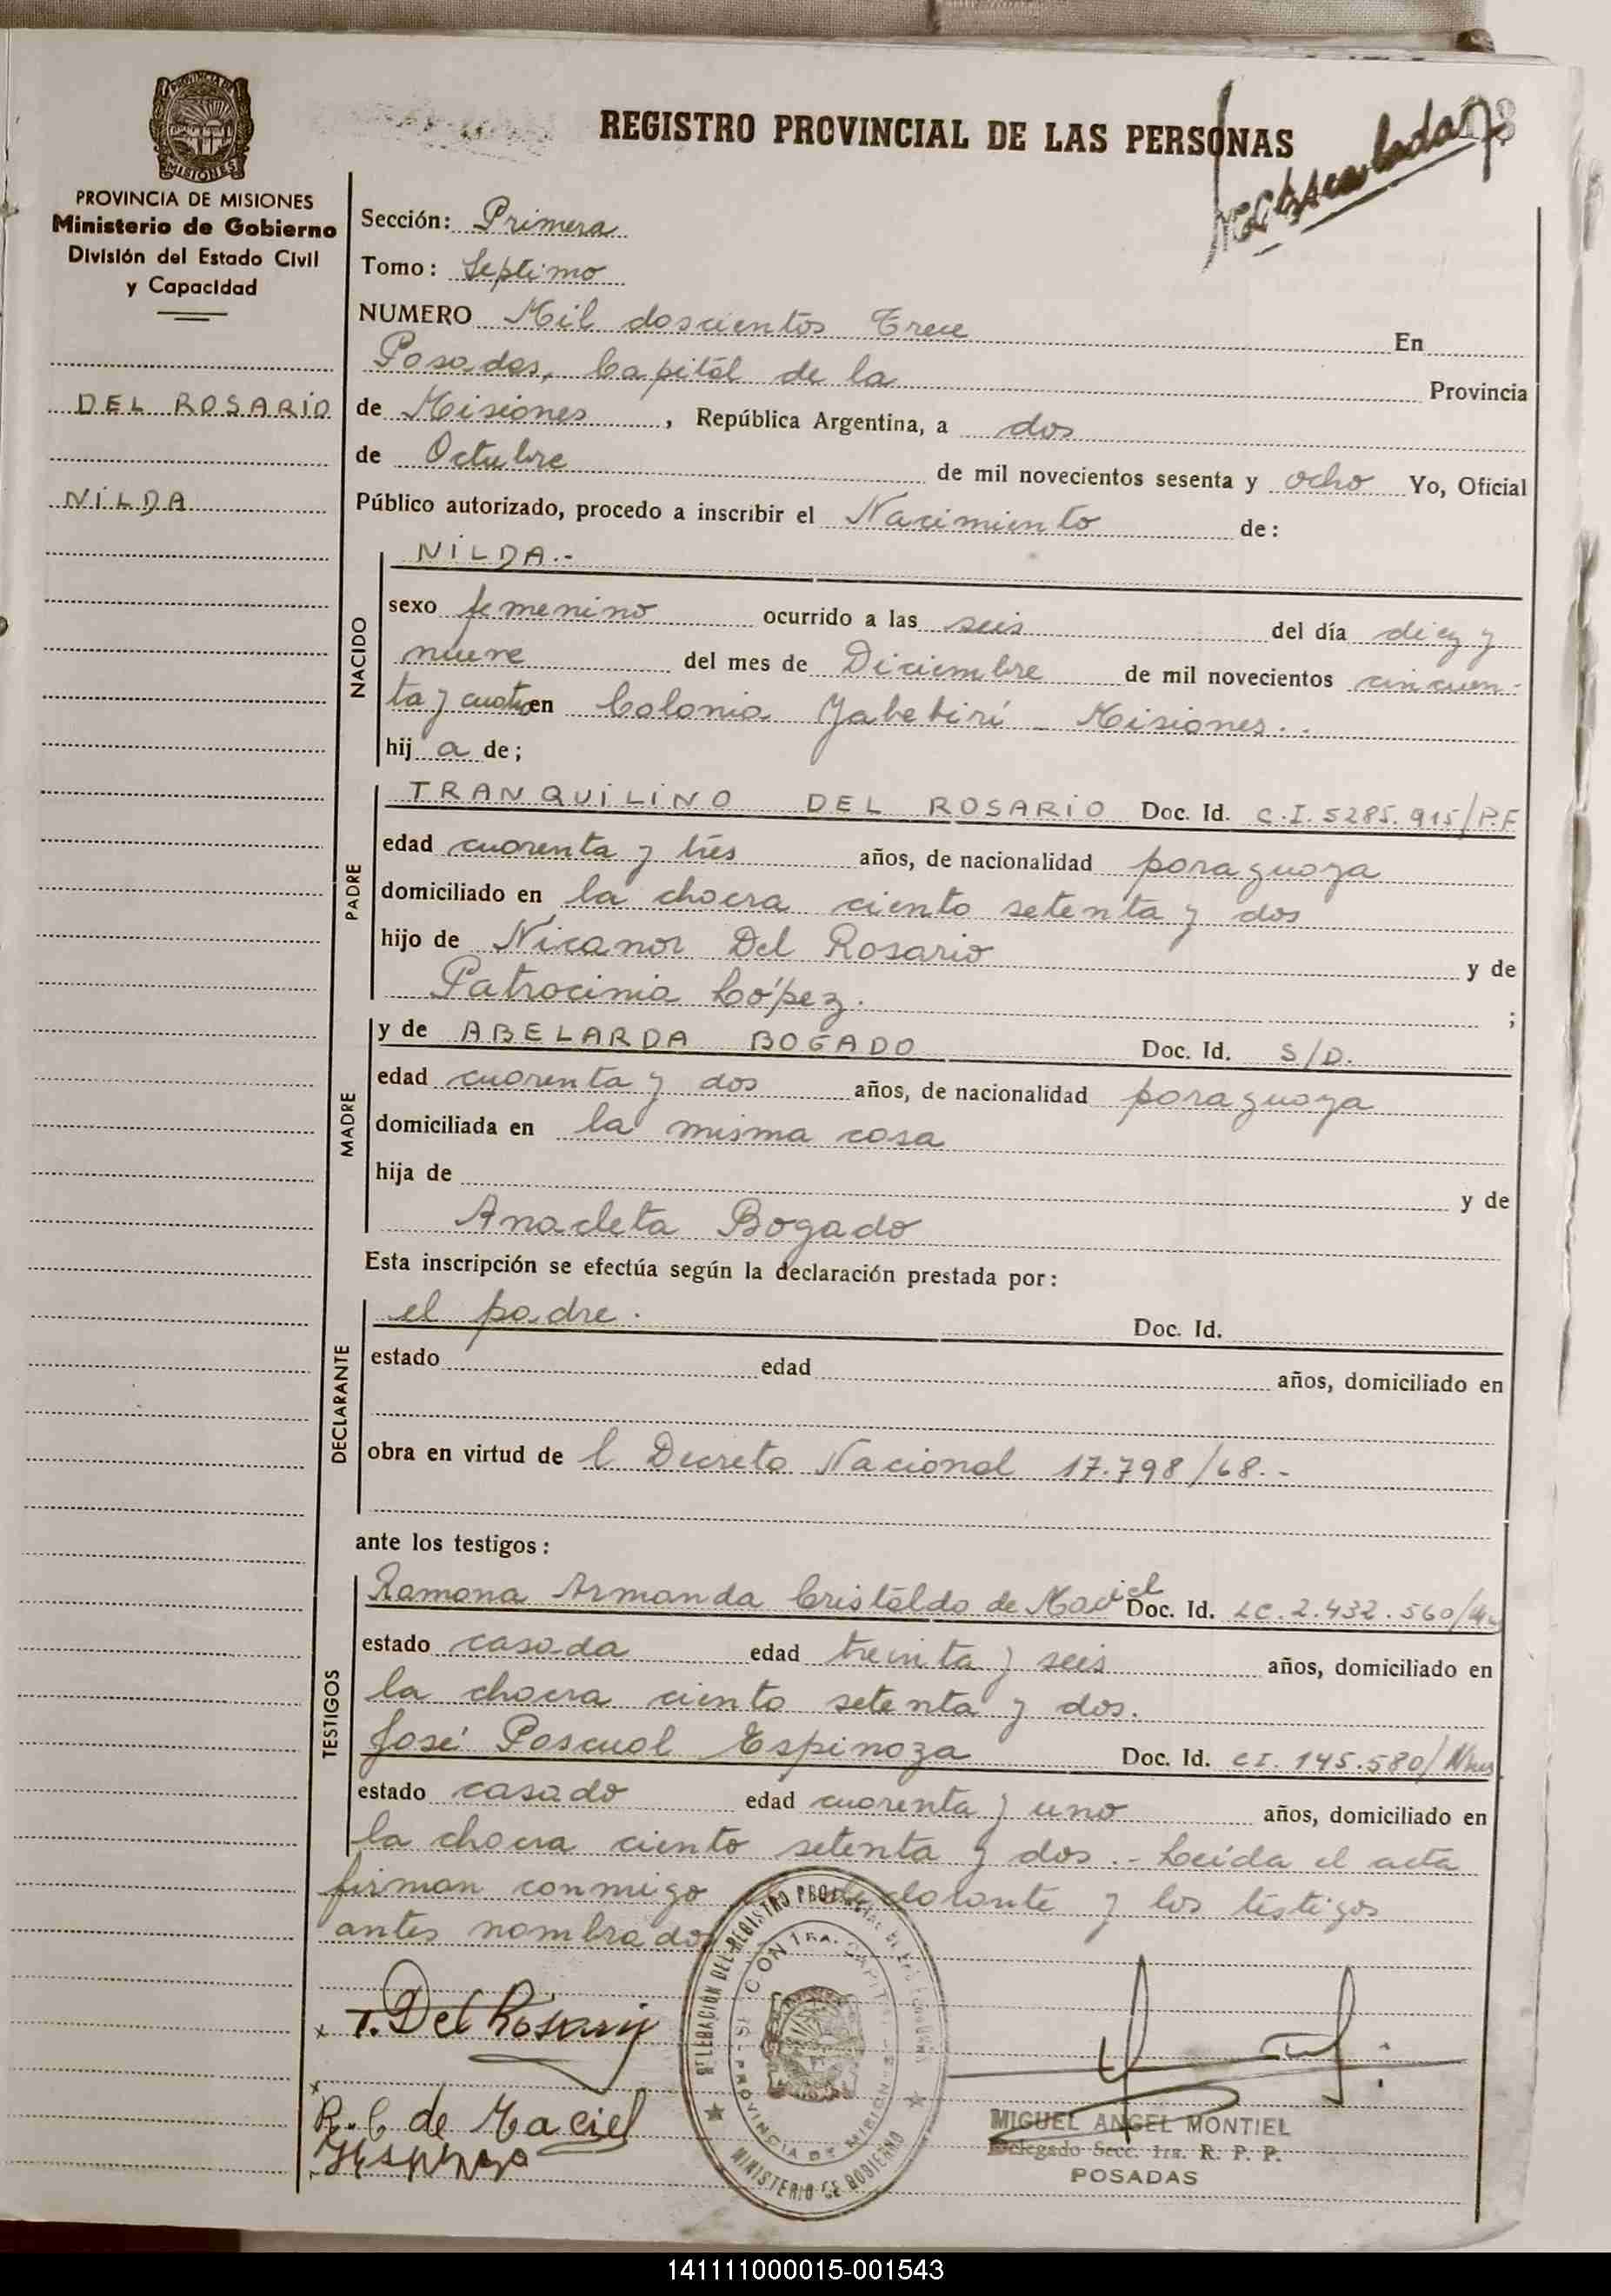 REGISTRO PROVINCIAL DE LAS PERSONAS
PROVINCIA DE MISIONES
MISIONES
PROVINCIA DE MISIONES
Ministerio de Gobierno
División del Estado Civil
y Capacidad
DEL ROSARIO
NILDA
Sección: Primera
Tomo: Septimo
NUMERO Mil doscientos Trece En
Posadas, Capital de la Provincia
de Misiones, República Argentina, a dos
de Octubre de mil novecientos sesenta y ocho Yo, Oficial
Público autorizado, procedo a inscribir el Nacimiento de:
NACIDO
NILDA.-
sexo femenino ocurrido a las seis del día diez y
nueve del mes de Diciembre de mil novecientos cincuen-
ta y cuatro en Colonia Yabebirí - Misiones..
hij a de;
PADRE
TRANQUILINO DEL ROSARIO Doc. Id. C.I. 5285.915/P.F
edad cuarenta y trés años, de nacionalidad paraguaya
domiciliado en la chacra ciento setenta y dos
hijo de Nicanor Del Rosario y de
Patrocinia López. ;
MADRE
y de ABELARDA BOGADO Doc. Id. S/D.
edad cuarenta y dos años, de nacionalidad paraguaya
domiciliada en la misma casa
hija de y de
Anacleta Bogado
Esta inscripción se efectúa según la declaración prestada por:
DECLARANTE
el padre. Doc. Id.
estado edad años, domiciliado en
obra en virtud de l Decreto Nacional 17.798/68.-
ante los testigos:
TESTIGOS
Ramona Armanda Cristaldo de Maciel Doc. Id. LC. 2.432.560/
estado casada edad treinta y seis años, domiciliado en
la chacra ciento setenta y dos.
José Pascual Espinoza Doc. Id. CI. 145.580/Mnes.
estado casado edad cuarenta y uno años, domiciliado en
la chacra ciento setenta y dos.- Leída el acta
firman conmigo declarante y los testigos
antes nombrados
T. Del Rosario
R. C de Maciel
DELEGACIÓN DEL REGISTRO PROVINCIAL DE LAS PERSONAS
SECCION 1RA. CAPITAL
PROVINCIA DE MISIONES
MINISTERIO DE GOBIERNO
MIGUEL ANGEL MONTIEL
Delegado Secc. 1ra. R. P. P.
POSADAS
141111000015-001543